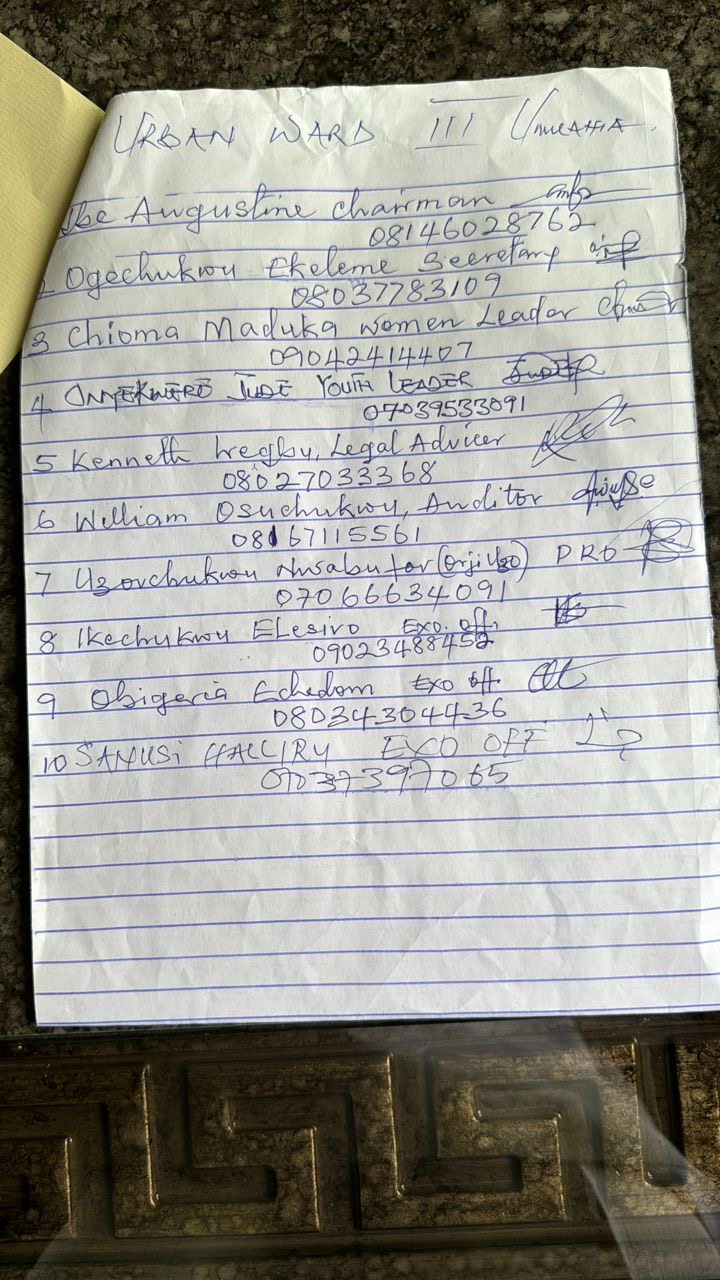 URBAN WARD III UMUAHIA.
Ibe Augustine Chairman
08146028762
2 Ogechukwu Ekeleme Secretary
08037783109
3 Chioma Maduka Women Leader
09042414407
4 ONYEKWERE JUDE YOUTH LEADER
07039533091
5 Kenneth Iregbu, Legal Adviser
08027033368
6 William Osuchukwu, Auditor
08167115561
7 Uzouchukwu (Orji Uzo) PRO
07066634091
8 Ikechukwu Elesiro Exo. Off.
09023488452
9 Obigeria Echedom Exo Off.
08034304436
10 SANUSI HALLIRU EXO OFF
07037397065